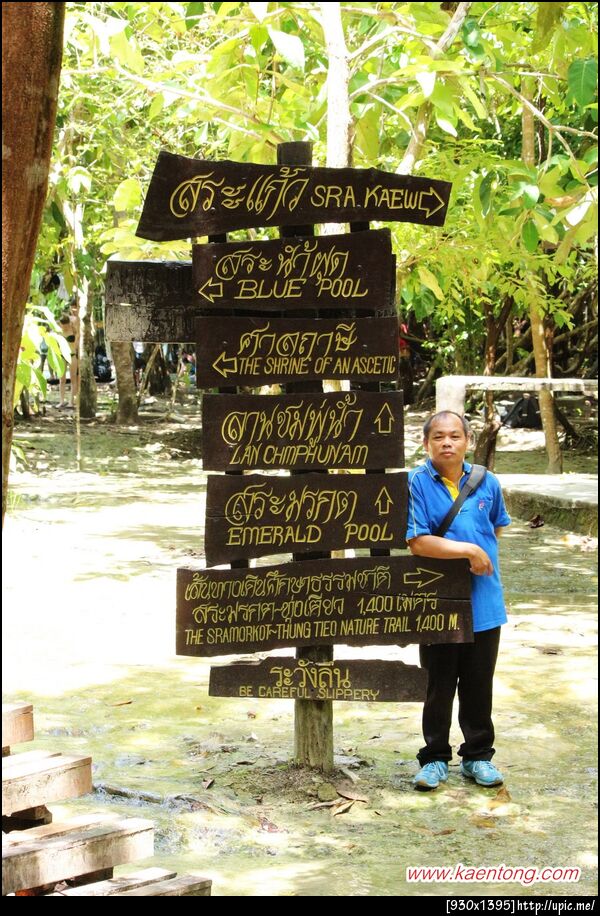 สระแก้ว SRA. KAEW
สระน้ำผุด
BLUE POOL
ศาลฤาษี
THE SHRINE OF AN ASCETIC
ลานชมพูน้ำ
LAN CHMPHUNAM
สระมรกต
EMERALD POOL
เส้นทางเดินศึกษาธรรมชาติ
สระมรกต-ทุ่งเตียว 1,400 เมตร
THE SRAMORKOT-THUNG TIEO NATURE TRAIL 1,400 M.
ระวังลื่น
BE CAREFUL SLIPPERY
www.kaentong.com
[930x1395]http://upic.me/